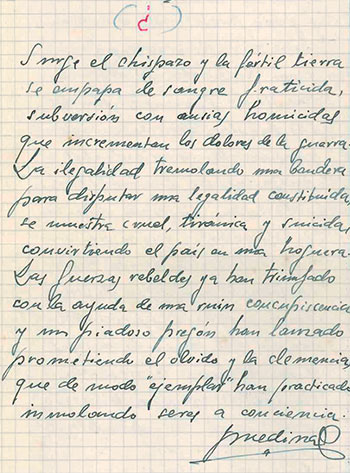 (¿)
Surge el chispazo y la fértil tierra
se empapa de sangre fraticida,
subversión con ansias homicidas
que incrementan los dolores de la guerra.
La ilegalidad tremolando una bandera
para disputar una legalidad constituida,
se muestra cruel, tiránica y suicida
convirtiendo el país en una hoguera.
Las fuerzas rebeldes ya han triunfado
con la ayuda de una ruin concupiscencia
y un piadoso pregón han lanzado
prometiendo el olvido y la clemencia,
que de modo "ejemplar" han practicado
inmolando seres a conciencia.